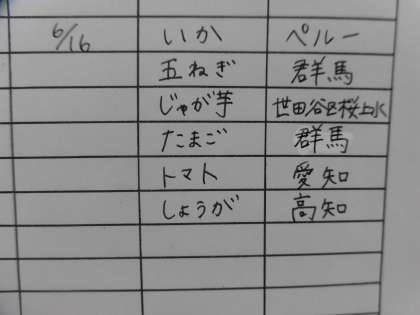 6/16 いか ペルー
五ねぎ 群馬
じゃが芋 世田谷区桜上水
たまご 群馬
トマト 愛知
しょうが 高知